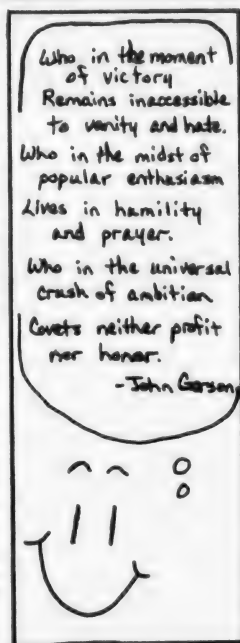 Who in the moment
of victory
Remains inaccessible
to vanity and hate.
Who in the midst of
popular enthusiasm
Lives in humility
and prayer.
Who in the universal
crush of ambition
Covets neither profit
nor honor.
-John Gerson